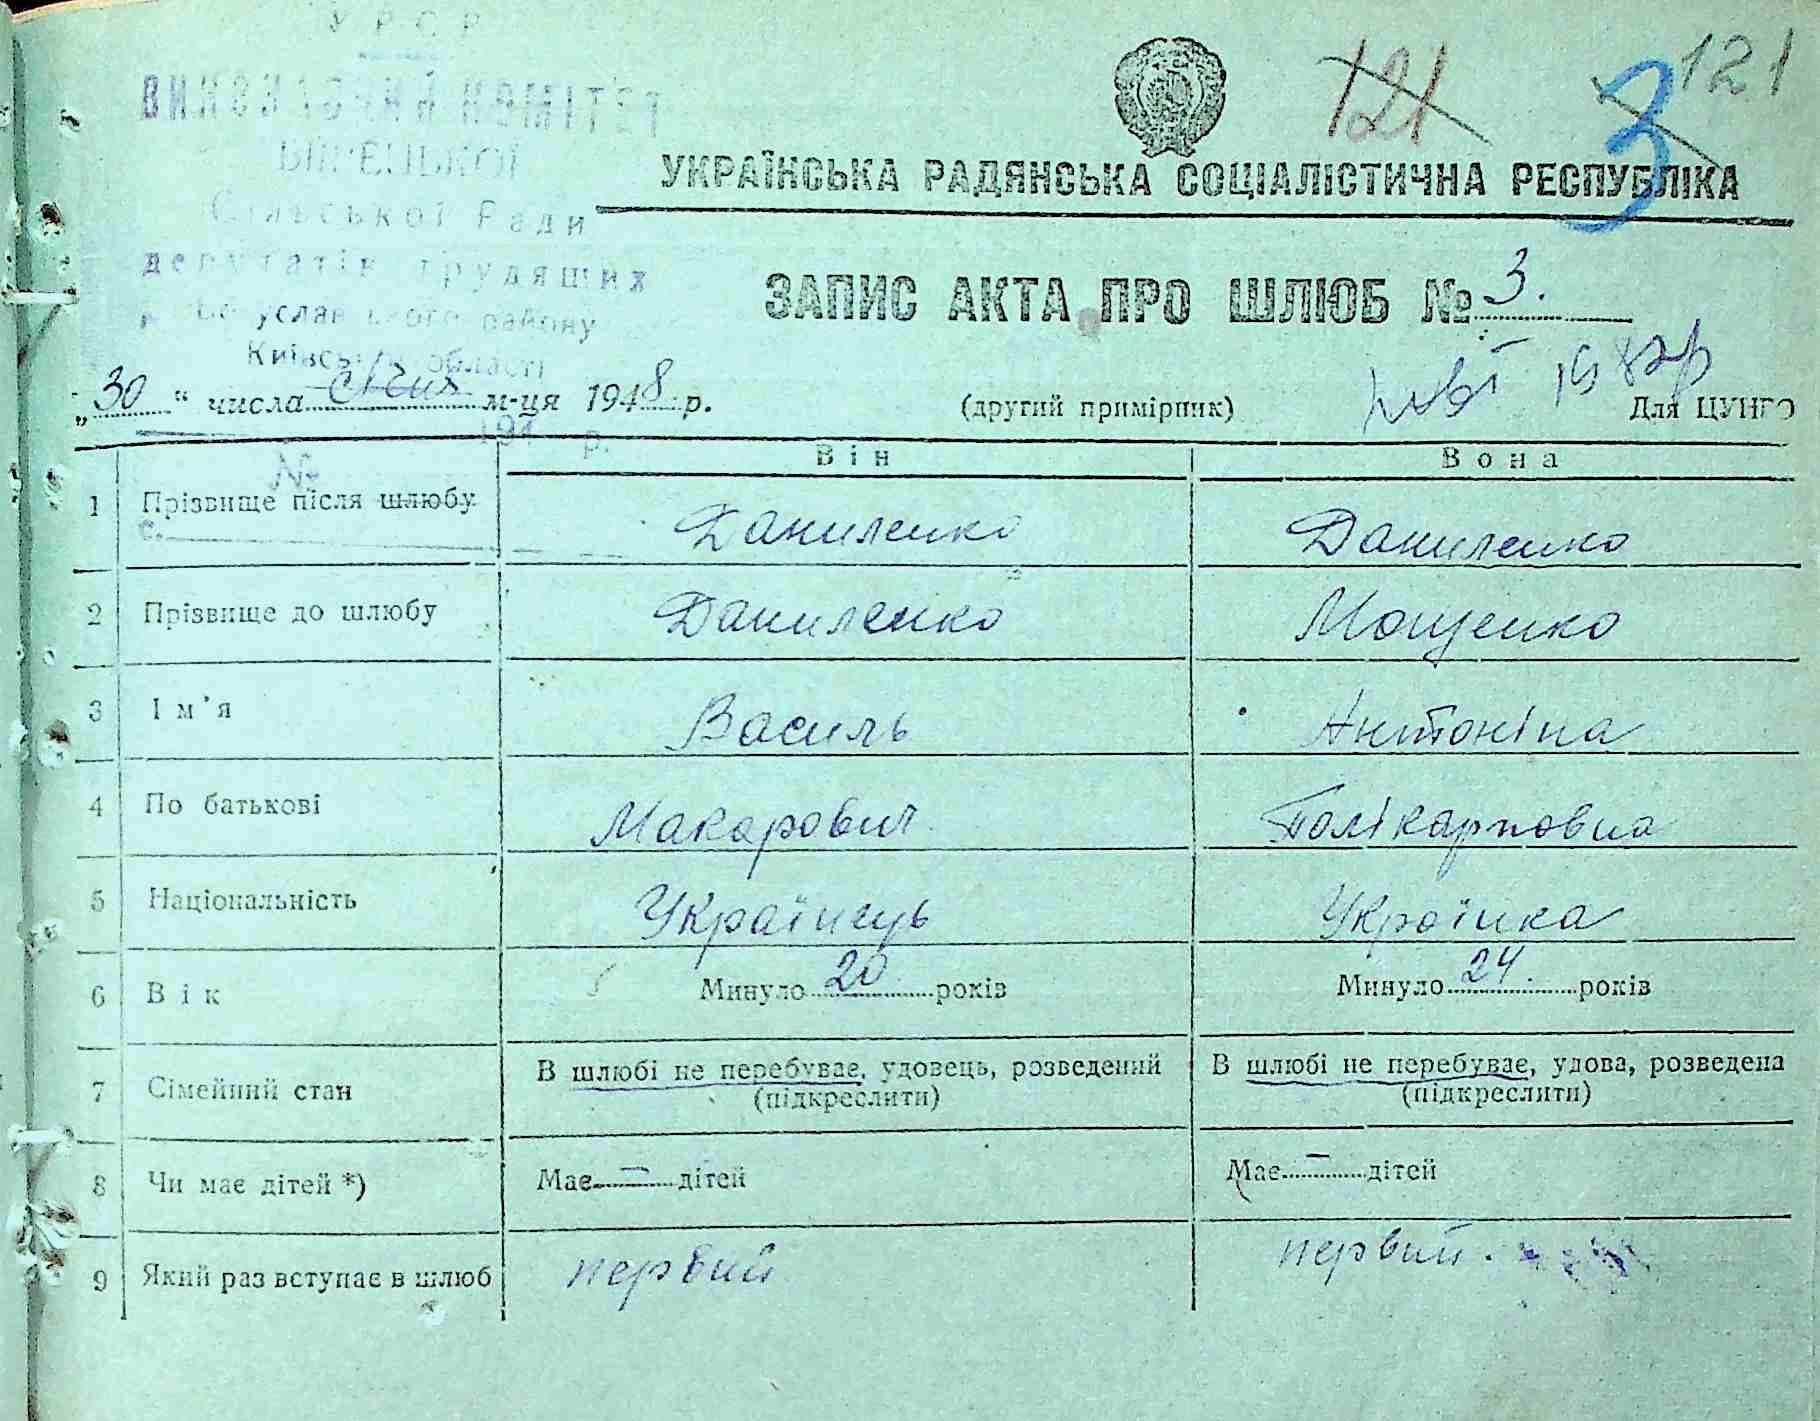 У Р С Р
ВИКОНАВЧИЙ КОМІТЕТ
Сільської Ради
депутатів трудящих
Богуславського району
Київської області
121
3
121
УКРАЇНСЬКА РАДЯНСЬКА СОЦІАЛІСТИЧНА РЕСПУБЛІКА
ЗАПИС АКТА ПРО ШЛЮБ № 3.
„30“ числа січня м-ця 1948 р.
(другий примірник)
Для ЦУНГО
194 р.
№
Він
Вона
1 Прізвище після шлюбу Даниленко Даниленко
с.
2 Прізвище до шлюбу Даниленко Мощенко
3 Ім'я Василь Антоніна
4 По батькові Макарович Полікарповна
5 Національність Українець Українка
6 Вік Минуло 20 років Минуло 24. років
7 Сімейний стан В шлюбі не перебуває, удовець, розведений В шлюбі не перебуває, удова, розведена
(підкреслити) (підкреслити)
8 Чи має дітей *) Має — дітей Має — дітей
9 Який раз вступає в шлюб первий первий.